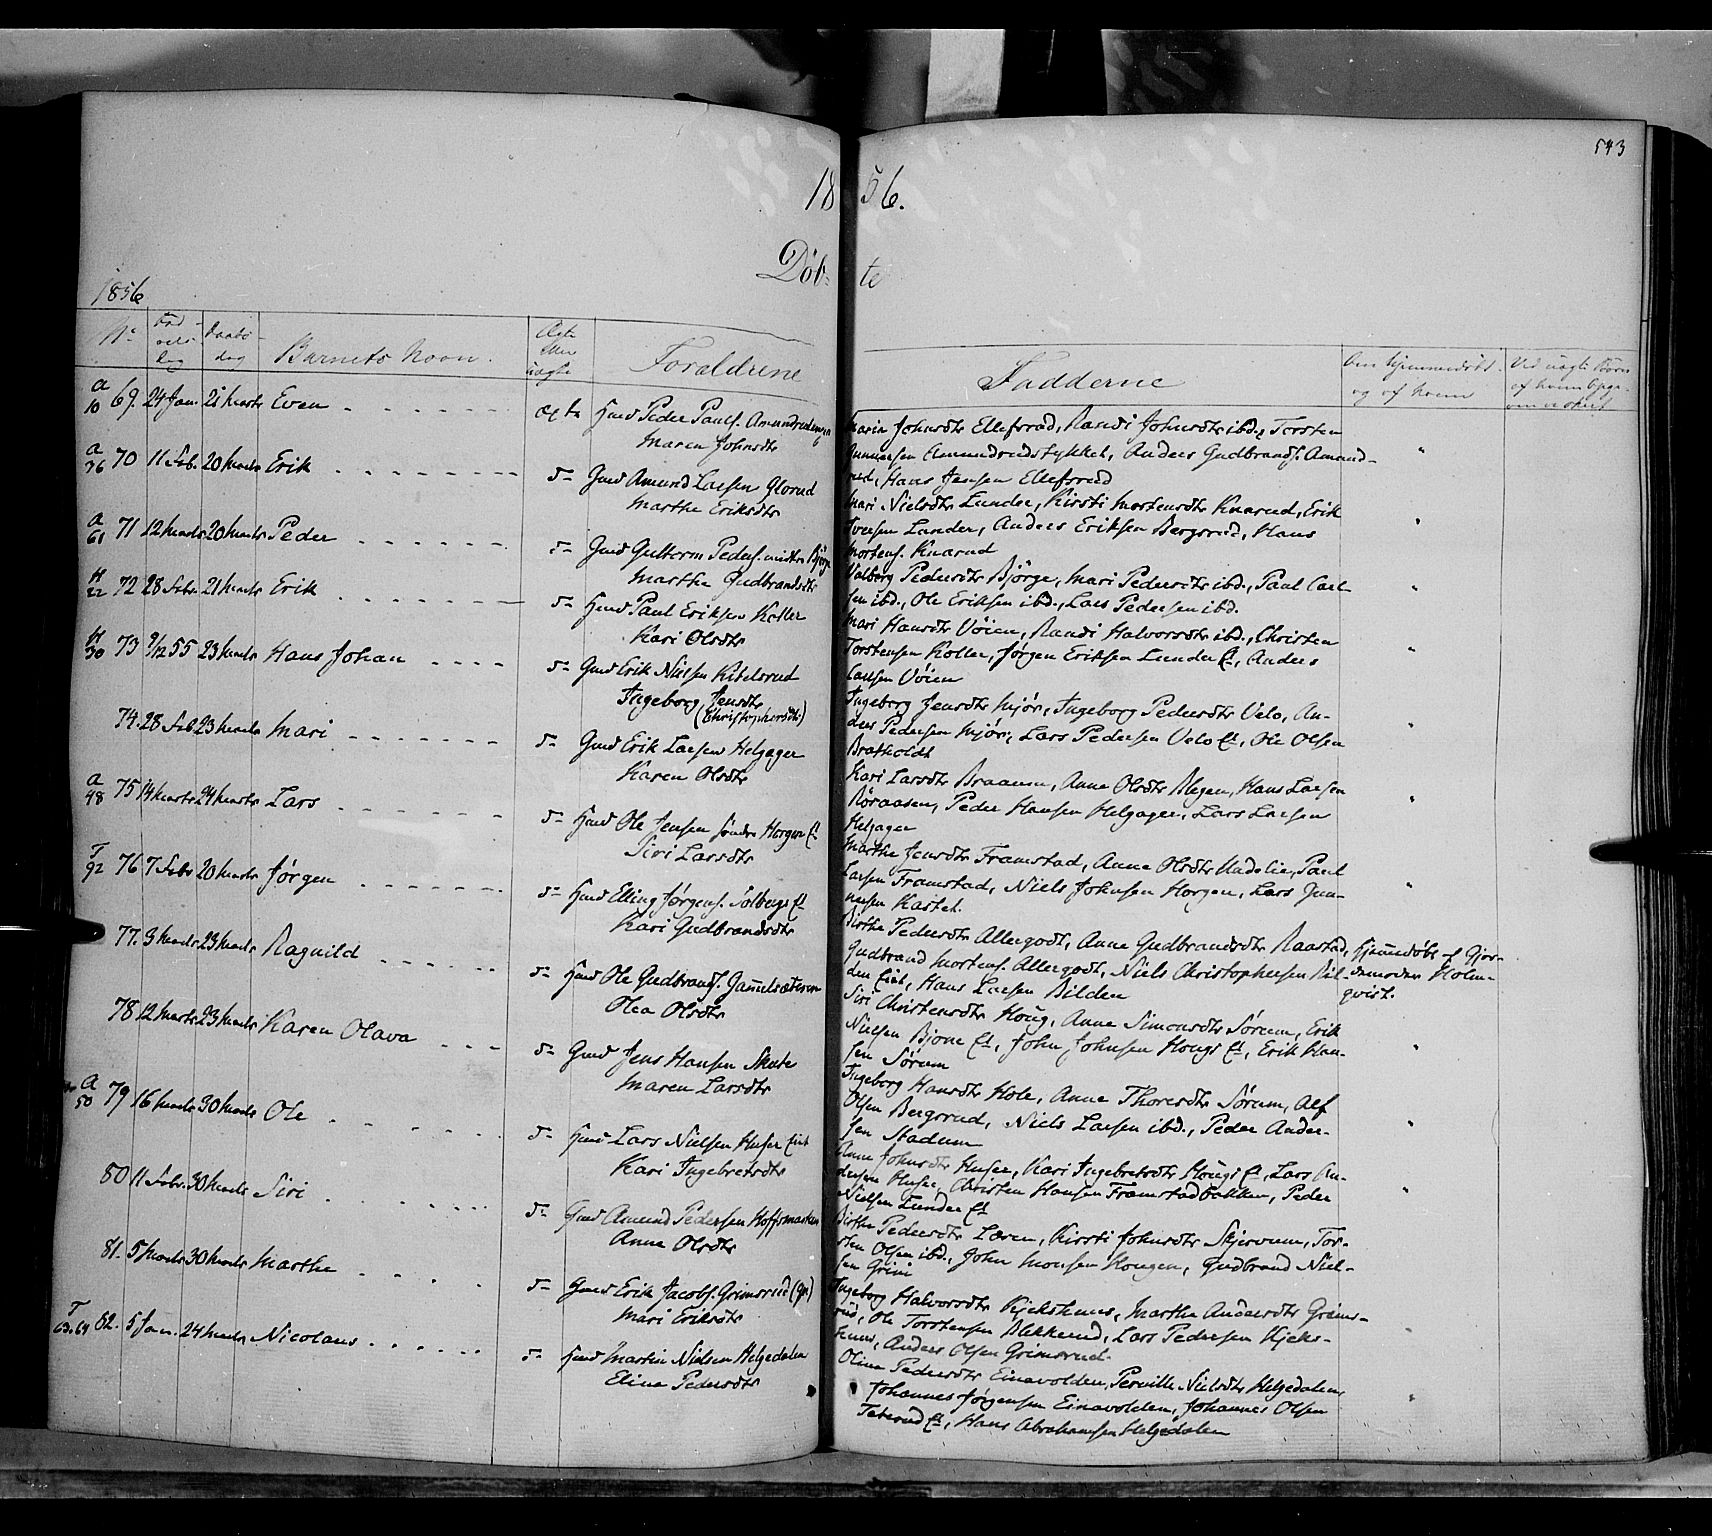 543
1856.
Døb- te
1856
No Fød- sels- dag Daabs- dag Barnets Navn. Ægte eller uægte Forældrene Fadderne Om hjemmedøbt og af hvem Ved uægte Børn af hvem Opga-
A 10 69. 24 Jan. 21 Marts Even ægte Gmd Peder Pauls. Amundrud
Maren Johnsdtr
Maria Johnsdtr Ellefsrud, Randi Johnsdtr ibd., Torsten
Gunnarsen Amundrudstykket, Anders Gudbrands. Amund-
rud, Hans Jensen Ellefsrud
A 76 70 11 Febr. 20 Marts Erik Gmd Amund Larsen Glorud
Marthe Eriksdtr
Mari Nielsdtr Lunder, Kirsti Mortensdtr Knarud, Erik
Iversen Lunder, Anders Eriksen Bergsrud, Hans
Mortens. Knarud
A 61 71 12 Marts 20 Marts Peder Gmd Gulterm Peders. Bjørge
Marthe Gudbrandsdtr
Valborg Pedersdtr Bjørge, Mari Pedersdtr ibd., Paul Carl-
sen ibd., Ole Eriksen ibd., Lars Pedersen ibd.
H 22 72 28 Febr. 21 Marts Erik Hmd Paul Eriksen Koller
Kari Olsdtr
Mari Hansdtr Vøien, Randi Halvorsdtr ibd., Christen
Torstensen Koller, Jørgen Eriksen Lunder Et, Anders
Larsen Vøien
H 30 73 9/12 55 23 Marts Hans Johan Gmd Erik Nielsen Kibelsrud
Ingeborg Jensdtr
(Christophersdtr)
Ingeborg Jensdtr Mjør, Ingeborg Pedersdtr Velo, An-
ders Pedersen Mjør, Lars Pedersen Velo Et, Ole Olsen
Bratholdt
74. 28 Feb 23 Marts Mari Gmd Erik Larsen Helgager
Karen Olsdtr
Kari Larsdtr Braamen, Anne Olsdtr Blegen, Hans Larsen
Røraasen, Peder Hansen Helgager, Lars Larsen
Helgager
A 48 75 14 Marts 24 Marts Lars Hmd Ole Jensen Søndre Horgen Et
Siri Larsdtr
Marthe Jensdtr Framstad, Anne Olsdtr Madelie, Paul
Larsen Framstad, Niels Johnsen Horgen, Lars Gun-
nersen Kastet.
T 92 76 7 Febr 20 Marts Jørgen Hmd Elling Jørgens. Solbergs Et
Kari Gudbrandsdtr
Birthe Pedersdtr Allergodt, Anne Gudbrandsdtr Raastad,
Gudbrand Mortens. Allergodt, Niels Christophersen Bil-
den Eiet, Hans Larsen Bilden
77. 3 Marts 23 Marts Ragnild Hmd Ole Gudbrands. Gamelsæteren
Olea Olsdtr
Hjemmedøbt af Gjor-
demoder Holm-
qvist.
Siri Christensdtr Houg, Anne Simonsdtr Sørum, Erik
Nielsen Bjone Et, John Johnsen Hougs Et, Erik Han-
sen Sørum
78 12 Marts 23 Marts Karen Olava Gmd Jens Hansen Skute
Maren Larsdtr
Ingeborg Hansdtr Hole, Anne Thoresdtr Sørum, Alf
Olsen Bergsrud, Niels Larsen ibd., Peder Ander-
sen Stadum
A 50 79 16 Marts 30 Marts Ole Hmd Lars Nielsen Huser Eiet
Kari Ingebretsdtr
Anne Johnsdtr Huser, Kari Ingebretsdtr Hougs Et, Lars An-
dersen Huser, Christen Hansen Framstadbakken, Peder
Nielsen Lunder Et
80 11 Febr. 30 Marts Siri Gmd Amund Pedersen Hoffsmarken
Anne Olsdtr
Birthe Pedersdtr Løren, Kirsti Johnsdtr Skjervum, Tor-
sten Olsen ibd., John Monsen Hougen, Gudbrand Niel-
sen Grini
81. 5 Marts 30 Marts Marthe Gmd Erik Jacobs. Grimsrud (Gr)
Mari Eriksdtr
Ingeborg Halvorsdtr Kjekshuus, Marthe Andersdtr Grims-
rud, Ole Torstensen Blekkerud, Lars Pedersen Kjeks-
huus, Anders Olsen Grimsrud.
T 63.64 82. 5 Jan. 24 Marts Nicolaus Hmd Martin Nielsen Helgedalen
Eline Pedersdtr
Oline Pedersdtr Einavolden, Pernille Nielsdtr Helgedalen,
Johannes Jørgensen Einavolden, Johannes Olsen
Teterud Et, Hans Abrahamsen Helgedalen